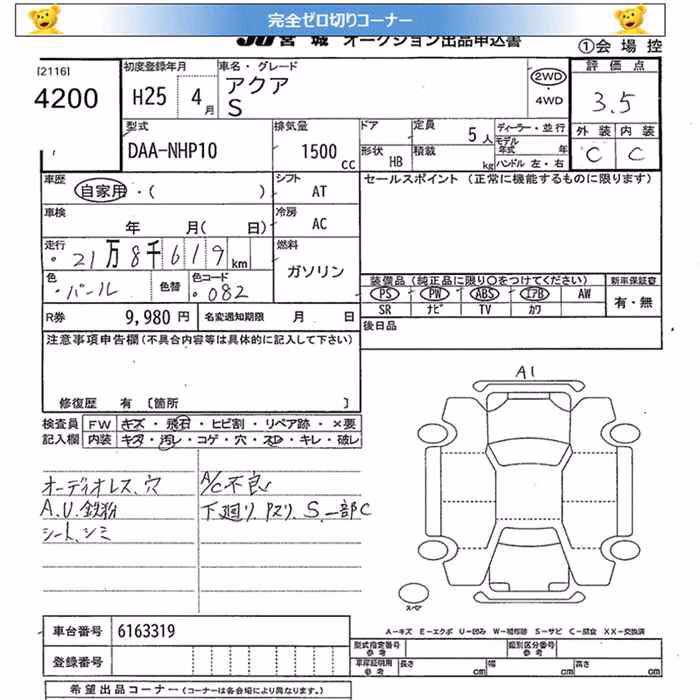 完全ゼロ切りコーナー
JU宮城 オークション出品申込書
①会場控
[2116]
4200
初度登録年月 H25 4月
車名・グレード アクア S
2WD・4WD
評価点 3.5
外装 内装
C C
型式 DAA-NHP10
排気量 1500 cc
ドア
形状 HB
定員 5人
積載 kg
ディーラー・並行
モデル年式 年
ハンドル 左・右
車歴 自家用・( )
シフト AT
セールスポイント (正常に機能するものに限ります)
車検 年 月( 日)
冷房 AC
走行 ・21万8千619km
燃料 ガソリン
色 ・パール 色替
色コード ・082
装備品 (純正品に限り○をつけてください) 新車保証書
PS PW ABS エアB AW 有・無
SR ナビ TV カワ
R券 9,980 円 名変通知期限 月 日
後日品
注意事項申告欄(不具合内容等は具体的に記入して下さい)
修復歴 有 〔箇所
検査員記入欄
FW キズ・飛石・ヒビ割・リペア跡・×要
内装 キズ・汚レ・コゲ・穴・スレ・キレ・破レ
A1
オーディオレス、穴
A.U.鉄粉
シート、シミ
A/C不良
下廻り、アスリ、S、一部C
スペア
車台番号 6163319
登録番号
A-キズ E-エクボ U-凹み W-補修跡 S-サビ C-腐食 XX-交換済
型式指定番号 参考 類別区分番号 参考
車庫証明用 参考 長さ cm 幅 cm 高さ cm
希望出品コーナー (コーナーは各会場により異なります。)